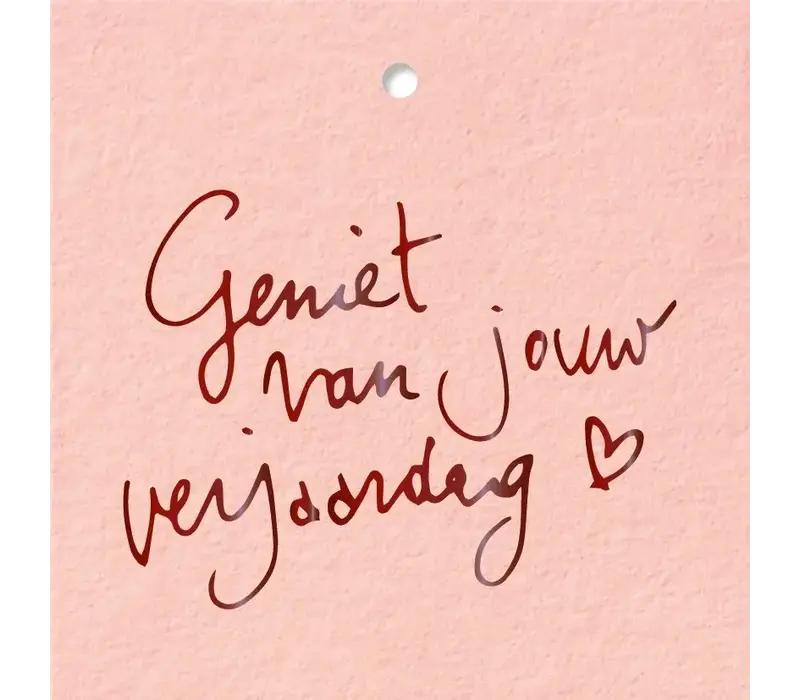 Geniet
van jouw
verjaardag ♡